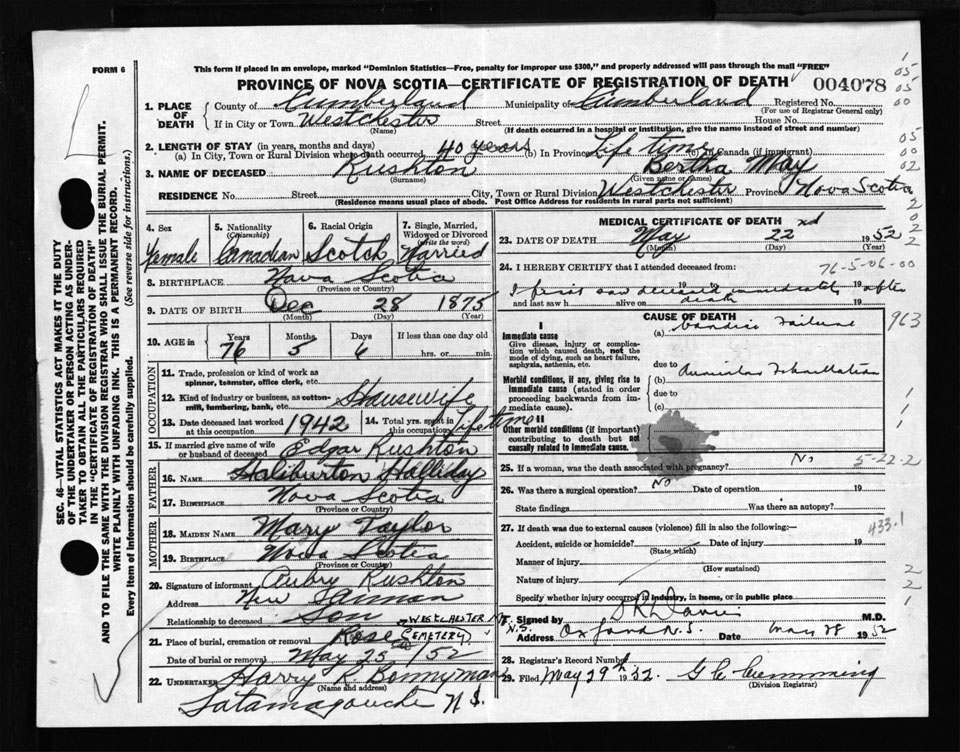 FORM 6
This form if placed in an envelope, marked "Dominion Statistics—Free, penalty for improper use $300," and properly addressed will pass through the mail "FREE"
PROVINCE OF NOVA SCOTIA—CERTIFICATE OF REGISTRATION OF DEATH 004078
1. PLACE OF DEATH County of Cumberland Municipality of Cumberland Registered No.
(For use of Registrar General only)
If in City or Town Westchester Street House No.
(Name) (If death occurred in a hospital or institution, give the name instead of street and number)
2. LENGTH OF STAY (in years, months and days)
(a) In City, Town or Rural Division where death occurred 40 years (b) In Province Life time (c) In Canada (if immigrant)
3. NAME OF DECEASED Rushton Bertha May
(Surname) (Given name or names)
RESIDENCE No. Street City, Town or Rural Division Westchester Province Nova Scotia
(Residence means usual place of abode. Post Office Address for residents in rural parts not sufficient)
4. Sex 5. Nationality (Citizenship) 6. Racial Origin 7. Single, Married, Widowed or Divorced (write the word)
Female Canadian Scotch Married
8. BIRTHPLACE Nova Scotia
(Province or Country)
9. DATE OF BIRTH Dec 28 1875
(Month) (Day) (Year)
10. AGE in Years Months Days If less than one day old
76 5 6 hrs. or min.
OCCUPATION
11. Trade, profession or kind of work as spinner, teamster, office clerk, etc.
12. Kind of industry or business, as cotton-mill, lumbering, bank, etc. Housewife
13. Date deceased last worked at this occupation 1942 14. Total yrs. spent in this occupation Life time
15. If married give name of wife or husband of deceased Edgar Rushton
FATHER
16. NAME Haliburton Halliday
17. BIRTHPLACE Nova Scotia
(Province or Country)
MOTHER
18. MAIDEN NAME Mary Taylor
19. BIRTHPLACE Nova Scotia
(Province or Country)
20. Signature of informant Aubry Rushton
Address New Annan
Relationship to deceased Son
21. Place of burial, cremation or removal Rose WESTCHESTER N.S. (CEMETERY)
Date of burial or removal May 25 / 52
22. UNDERTAKER Harry R Bonnyman
(Name and address)
Tatamagouche N S.
MEDICAL CERTIFICATE OF DEATH
23. DATE OF DEATH May 22nd 1952
(Month) (Day) (Year)
24. I HEREBY CERTIFY that I attended deceased from:
76-5-06-00
19 to 19
I first saw deceased immediately after
and last saw h alive on death 19
CAUSE OF DEATH
I
Immediate cause
Give disease, injury or complication which caused death, not the mode of dying, such as heart failure, asphyxia, asthenia, etc.
(a) Cardiac Failure 963
due to
Morbid conditions, if any, giving rise to immediate cause (stated in order proceeding backwards from immediate cause).
(b) Auricular Fibrillation
due to
(c)
II
Other morbid conditions (if important) contributing to death but not causally related to immediate cause.
25. If a woman, was the death associated with pregnancy? No 5-22-2
26. Was there a surgical operation? No Date of operation 19
State findings Was there an autopsy?
27. If death was due to external causes (violence) fill in also the following:— 433.1
Accident, suicide or homicide? Date of injury 19
(State which)
Manner of injury
(How sustained)
Nature of injury
Specify whether injury occurred in industry, in home, or in public place
Signed by M.D.
Address Oxford N.S. Date May 28 1952
28. Registrar's Record Number
29. Filed May 29th 1952. G E Cumming
(Division Registrar)
SEC. 46—VITAL STATISTICS ACT MAKES IT THE DUTY OF THE UNDERTAKER OR PERSON ACTING AS UNDERTAKER TO OBTAIN ALL THE PARTICULARS REQUIRED IN THE "CERTIFICATE OF REGISTRATION OF DEATH" AND TO FILE THE SAME WITH THE DIVISION REGISTRAR WHO SHALL ISSUE THE BURIAL PERMIT.
WRITE PLAINLY WITH UNFADING INK. THIS IS A PERMANENT RECORD.
Every item of information should be carefully supplied. (See reverse side for instructions.)
1
05
05
00
05
00
02
2
0
2
2
1
1
1
2
2
1